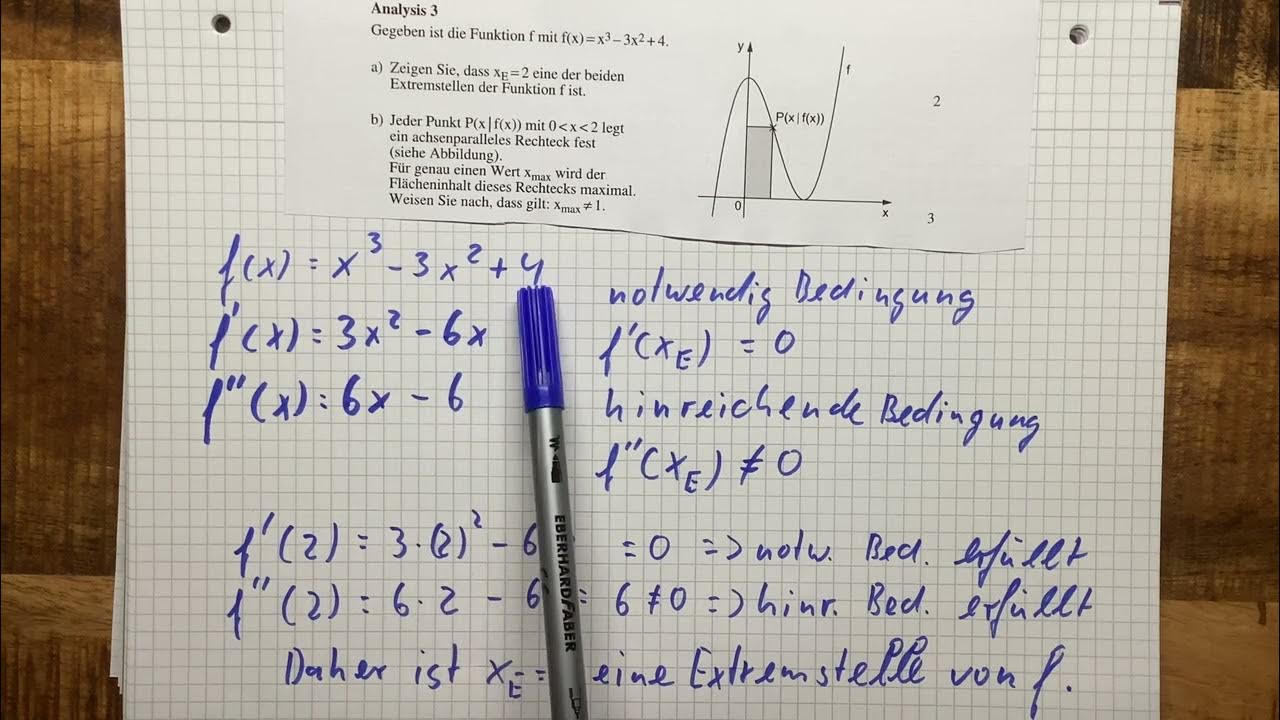 Analysis 3
Gegeben ist die Funktion f mit f(x)=x³–3x²+4.
a) Zeigen Sie, dass x_E=2 eine der beiden
Extremstellen der Funktion f ist.
2
b) Jeder Punkt P(x|f(x)) mit 0<x<2 legt
ein achsenparalleles Rechteck fest
(siehe Abbildung).
Für genau einen Wert x_max wird der
Flächeninhalt dieses Rechtecks maximal.
Weisen Sie nach, dass gilt: x_max≠1.
3
y
f
P(x|f(x))
0
x
f(x) = x³ - 3x² + 4
f'(x) = 3x² - 6x
f''(x) = 6x - 6
notwendig Bedingung
f'(x_E) = 0
hinreichende Bedingung
f''(x_E) ≠ 0
f'(2) = 3·(2)² - 6 = 0 => notw. Bed. erfüllt
f''(2) = 6·2 - 6 = 6 ≠ 0 => hinr. Bed. erfüllt
Daher ist x_E = eine Extremstelle von f.
EBERHARD FABER